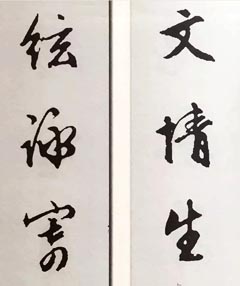 文情生
絃詠寄